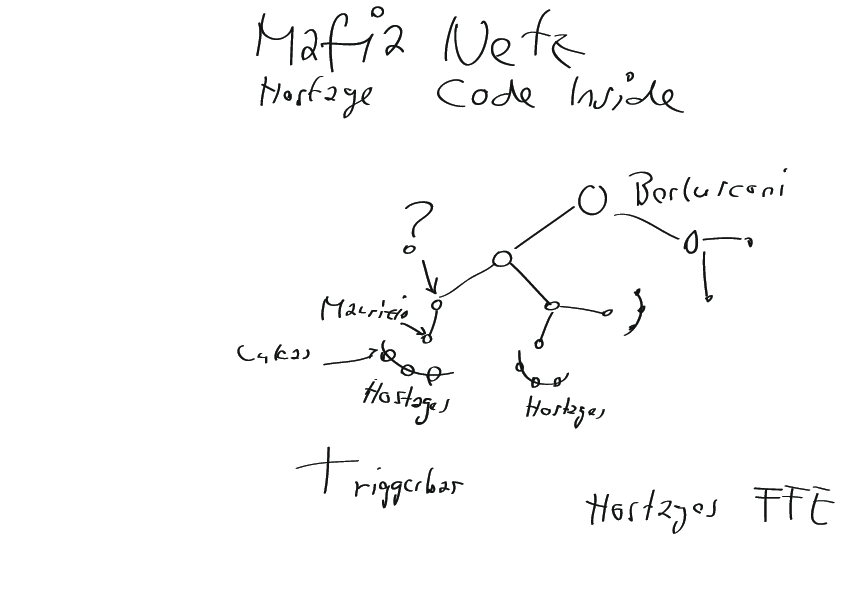 Mafia Netz
Hostage Code Inside
Berlusconi
?
Mauricio
Hostages
Hostages
Triggerbar
Hostages